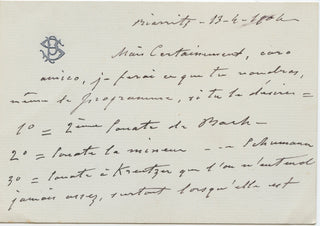 Biarritz - 13-4-1904
Mais Certainement, caro
amico, je ferai ce que tu voudras,
même le Programme, si tu le désires =
1º = 2ème Sonate de Bach -
2º = Sonate la mineur - - - Schumann
3º = Sonate à Kreutzer que l'on n'entend
jamais assez, surtout lorsqu'elle est